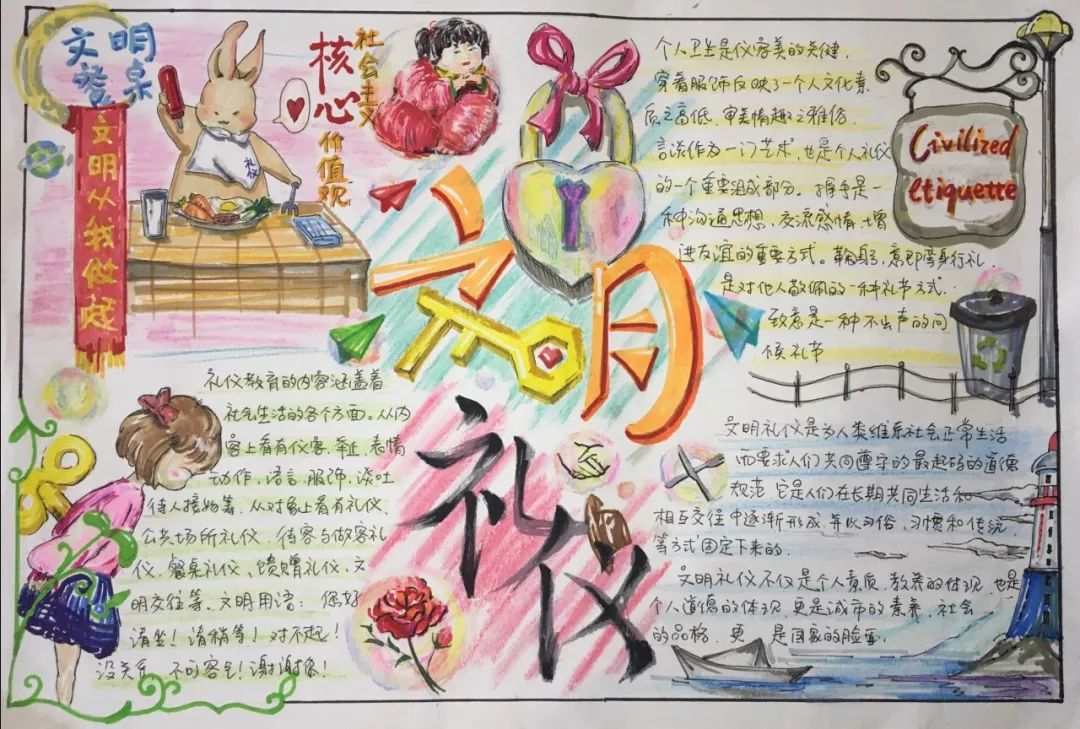 文明
餐桌
文明从我做起
社会主义
核心
价值观
礼仪
文明
礼仪
Civilized
etiquette
个人卫生是仪容美的关健,
穿着服饰反映了一个人文化素
质之高低,审美情趣之雅俗.
言谈作为一门艺术,也是个人礼仪
的一个重要组成部分。握手是一
种沟通思想、交流感情、增
进友谊的重要方式。鞠躬,意即弯身行礼,
是对他人敬佩的一种礼节方式..
致意是一种不出声的问
候礼节
礼仪教育的内容涵盖着
社会生活的各个方面。从内
容上看有仪容、举止、表情
动作、语言、服饰、谈吐
待人接物等.从对象上看有礼仪、
公共场所礼仪、待客与做客礼
仪、餐桌礼仪、馈赠礼仪、文
明交往等.文明用语:你好
请坐!请稍等!对不起!
没关系,不可客气!谢谢你!
文明礼仪是为人类维系社会正常生活
而要求人们共同遵守的最起码的道德
规范.它是人们在长期共同生活和
相互交往中逐渐形成,并以习俗、习惯和传统
等方式固定下来的.
文明礼仪不仅是个人素质、教养的体现,也是
个人道德的体现,更是城市的素养、社会
的品格,更 是国家的脸面